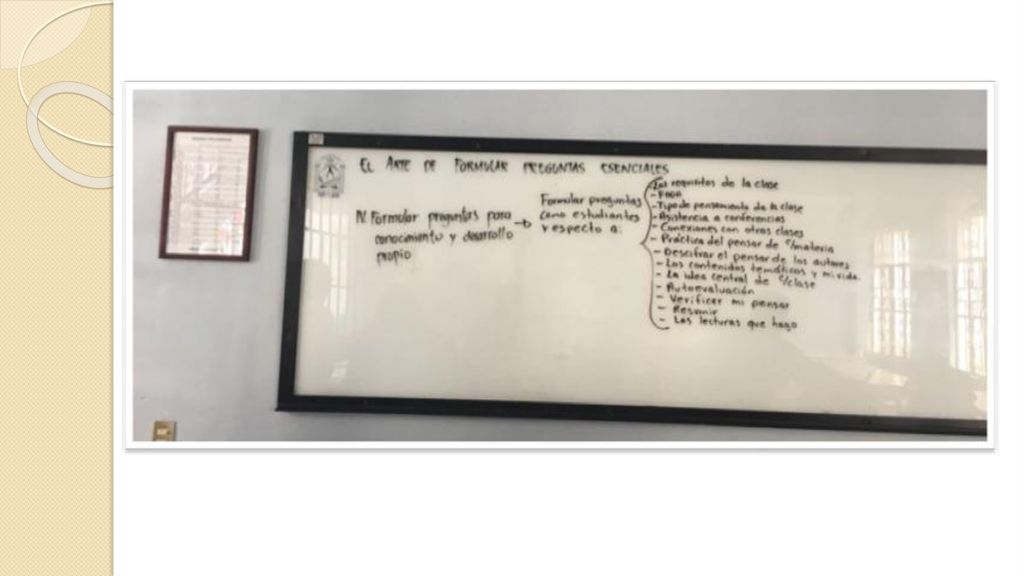 EL ARTE DE FORMULAR PREGUNTAS ESENCIALES
IV. Formular preguntas para
conocimiento y desarrollo
propio
Formular preguntas
como estudiantes
respecto a:
Los requisitos de la clase
- FODA
- Tipo de pensamiento de la clase
- Asistencia a conferencias
- Conexiones con otras clases
- Práctica del pensar de c/materia
- Descifrar el pensar de los autores
- Los contenidos temáticos y mi vida.
- La idea central de c/clase
- Autoevaluación
- Verificar mi pensar
- Resumir
- Las lecturas que hago